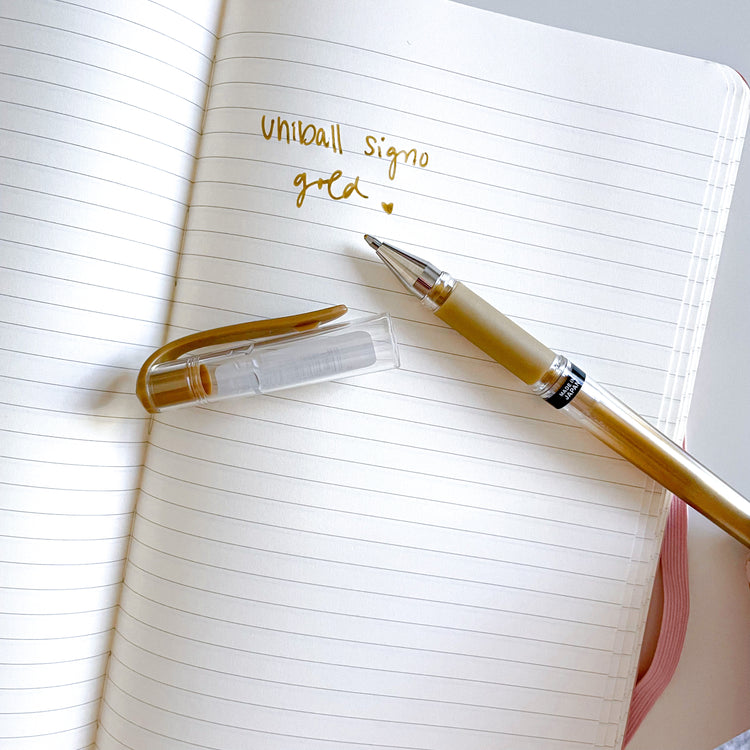 uniball signo
gold ♥
MADE IN
JAPAN